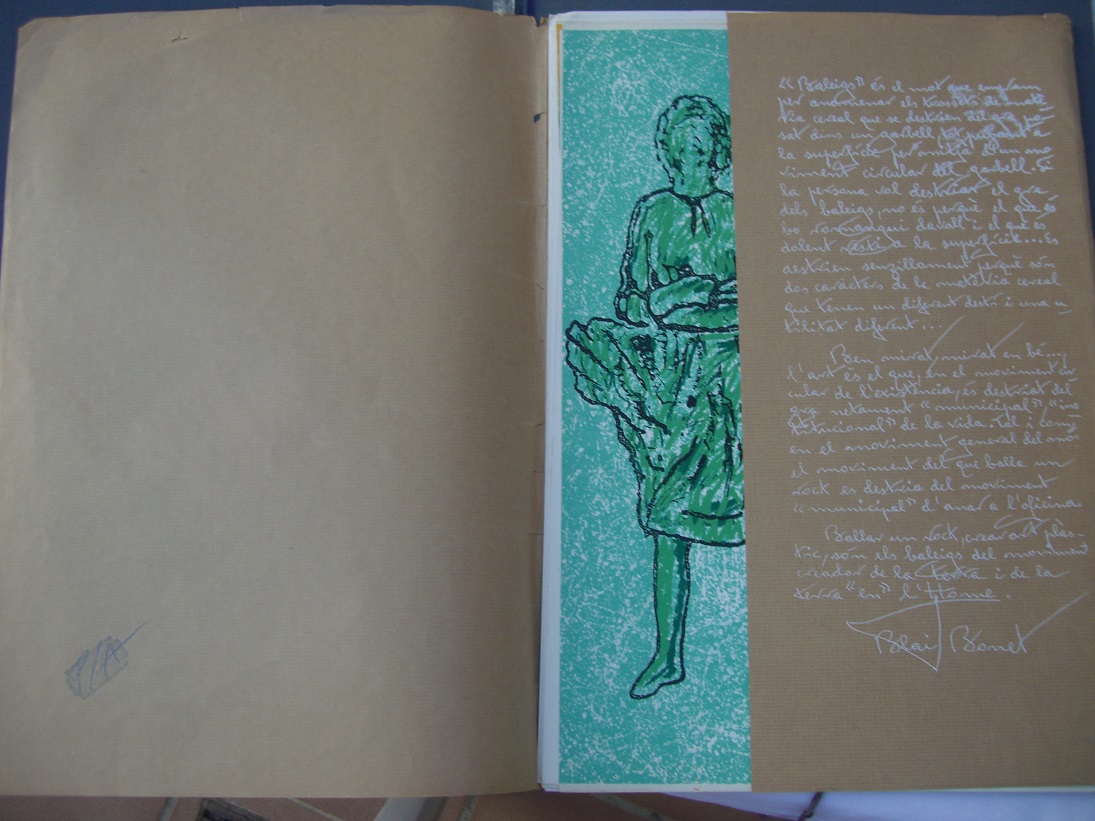 "Baleigs" és el mot que empram
per anomenar els trossets de matè-
ria cereal que se destrien del gra po-
sat dins un garbell, tot pujant a
la superfície per mitjà d'un mo-
viment circular del garbell. Si
la persona vol destriar el gra
dels baleigs, no és perquè el que és
bo romangui davall i el que és
dolent resti a la superfície... Es
destrien senzillament perquè són
dos caràcters de la matèria cereal
que tenen un diferent destí i una u-
tilitat diferent...
Ben mirat, mirat en bé...,
l'art és el que, en el moviment cir
cular de l'existència, és destriat del
gra netament "municipal" "ins
titucional" de la vida: tal i com,
en el moviment general del mo
el moviment del que balla un
rock es destria del moviment
"municipal" d'anar a l'oficina
Ballar un rock, crear art plàs-
tic, són els baleigs del moviment
creador de la Terra i de la
terra "en" l'Home.
Blai Bonet
P/A